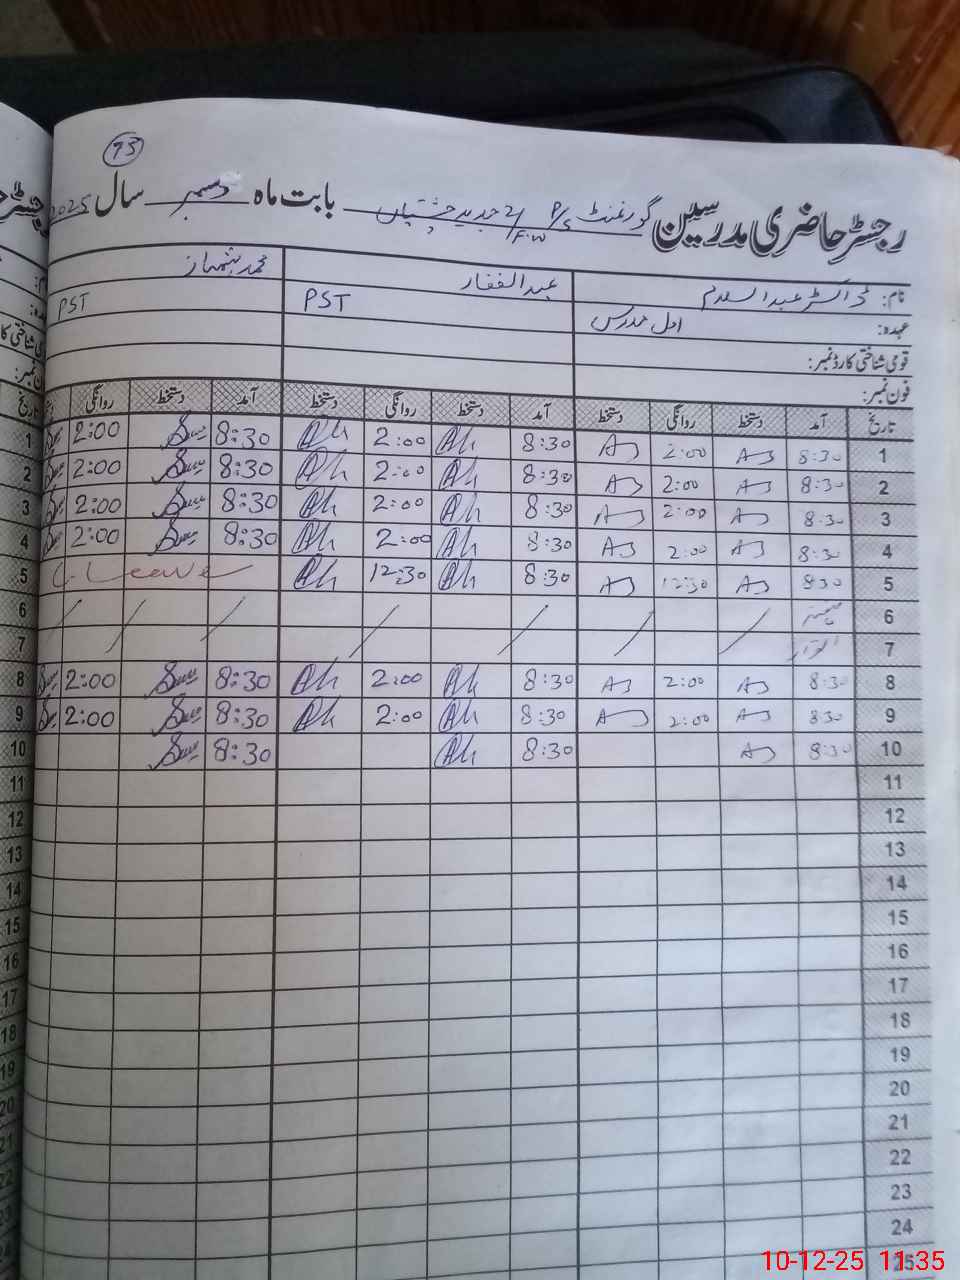 93
رجسٹر حاضری مدرسین گورنمنٹ P/S 2/F.W جدید چشتیاں بابت ماہ دسمبر سال 2025
نام: ڈاکٹر عبدالسلام عبدالغفار محمد شہباز
عہدہ: اول مدرس PST PST
قومی شناختی کارڈ نمبر:
فون نمبر:
تاریخ آمد دستخط روانگی دستخط آمد دستخط روانگی دستخط آمد دستخط روانگی
1 8:30 2:00 8:30 2:00 8:30 2:00
2 8:30 2:00 8:30 2:00 8:30 2:00
3 8:30 2:00 8:30 2:00 8:30 2:00
4 8:30 2:00 8:30 2:00 8:30 2:00
5 8:30 12:30 8:30 12:30 Leave
6
7 اتوار
8 8:30 2:00 8:30 2:00 8:30 2:00
9 8:30 2:00 8:30 2:00 8:30 2:00
10 8:30 8:30 8:30
11
12
13
14
15
16
17
18
19
20
21
22
23
24
25
10-12-25 11:35